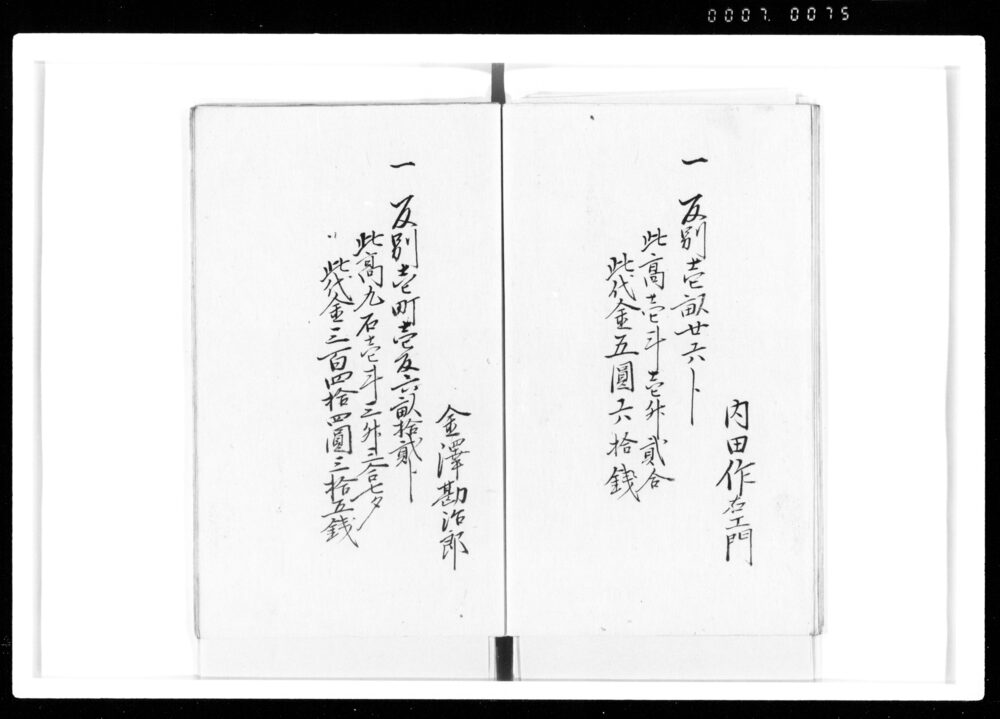 0007 0075
内田作右エ門
一 反別壱畝廿六卜
此高壱斗壱升貳合
此代金五圓六拾銭
金澤勘治郎
一 反別壱町壱反六畝拾貳卜
此高九石壱斗三升三合七夕
此代金三百四拾四圓三拾五銭